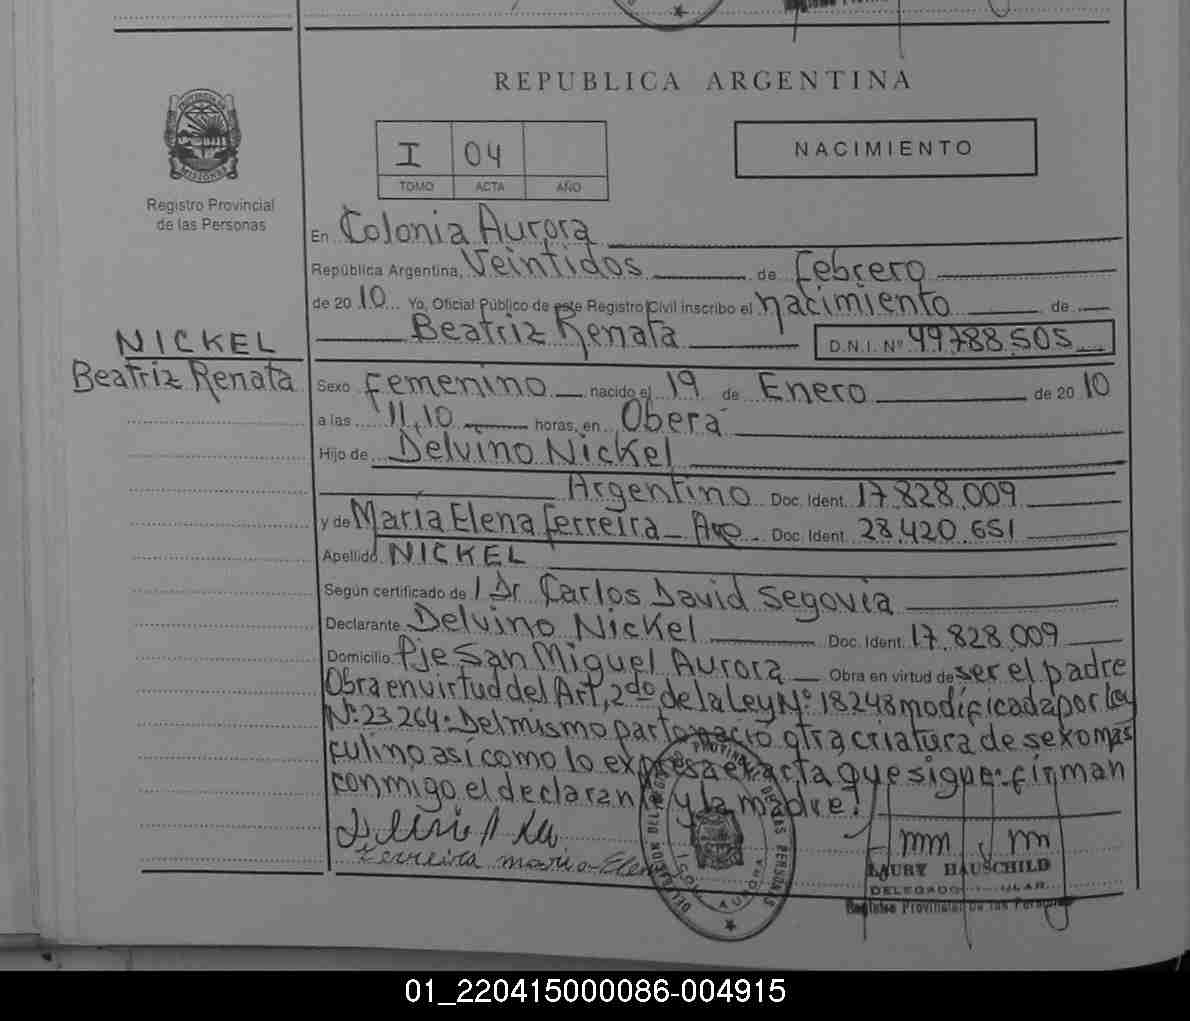 REPUBLICA ARGENTINA
PROVINCIA DE
MISIONES
Registro Provincial
de las Personas
I 04
TOMO ACTA AÑO
NACIMIENTO
En Colonia Aurora
República Argentina, Veintidos de Febrero
de 2010 Yo, Oficial Público de este Registro Civil inscribo el nacimiento de
Beatriz Renata D.N.I. Nº 49.788.505
NICKEL
Beatriz Renata
Sexo Femenino nacido el 19 de Enero de 2010
a las 11,10 horas, en Oberá
Hijo de Delvino Nickel
Argentino Doc. Ident. 17.828.009
y de María Elena Ferreira Doc. Ident. 28.420.651
Apellido NICKEL
Según certificado de Dr Carlos David Segovia
Declarante Delvino Nickel Doc. Ident. 17.828.009
Domicilio Pje San Miguel Aurora Obra en virtud de ser el padre
Obra en virtud del Art, 2do de la Ley Nº 18248 modificada por Ley
Nº 23264. Del mismo parto nació otra criatura de sexo mas
culino así como lo expresa el acta que sigue. firman
conmigo el declarante y la madre.
Ferreira maria Elena
LAURY HAUSCHILD
DELEGADO TITULAR
Registro Provincial de las Personas
AURORA
01_220415000086-004915